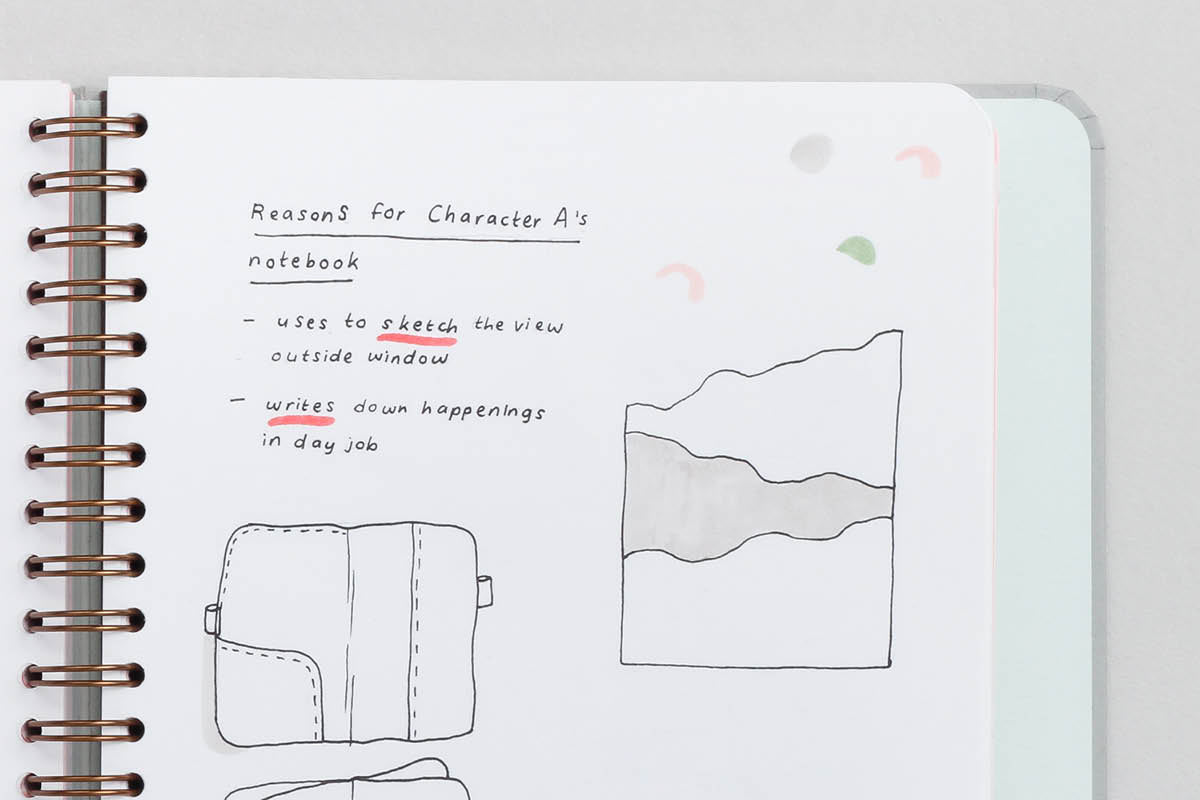 Reasons for Character A's
notebook
- uses to sketch the view
outside window
- writes down happenings
in day job